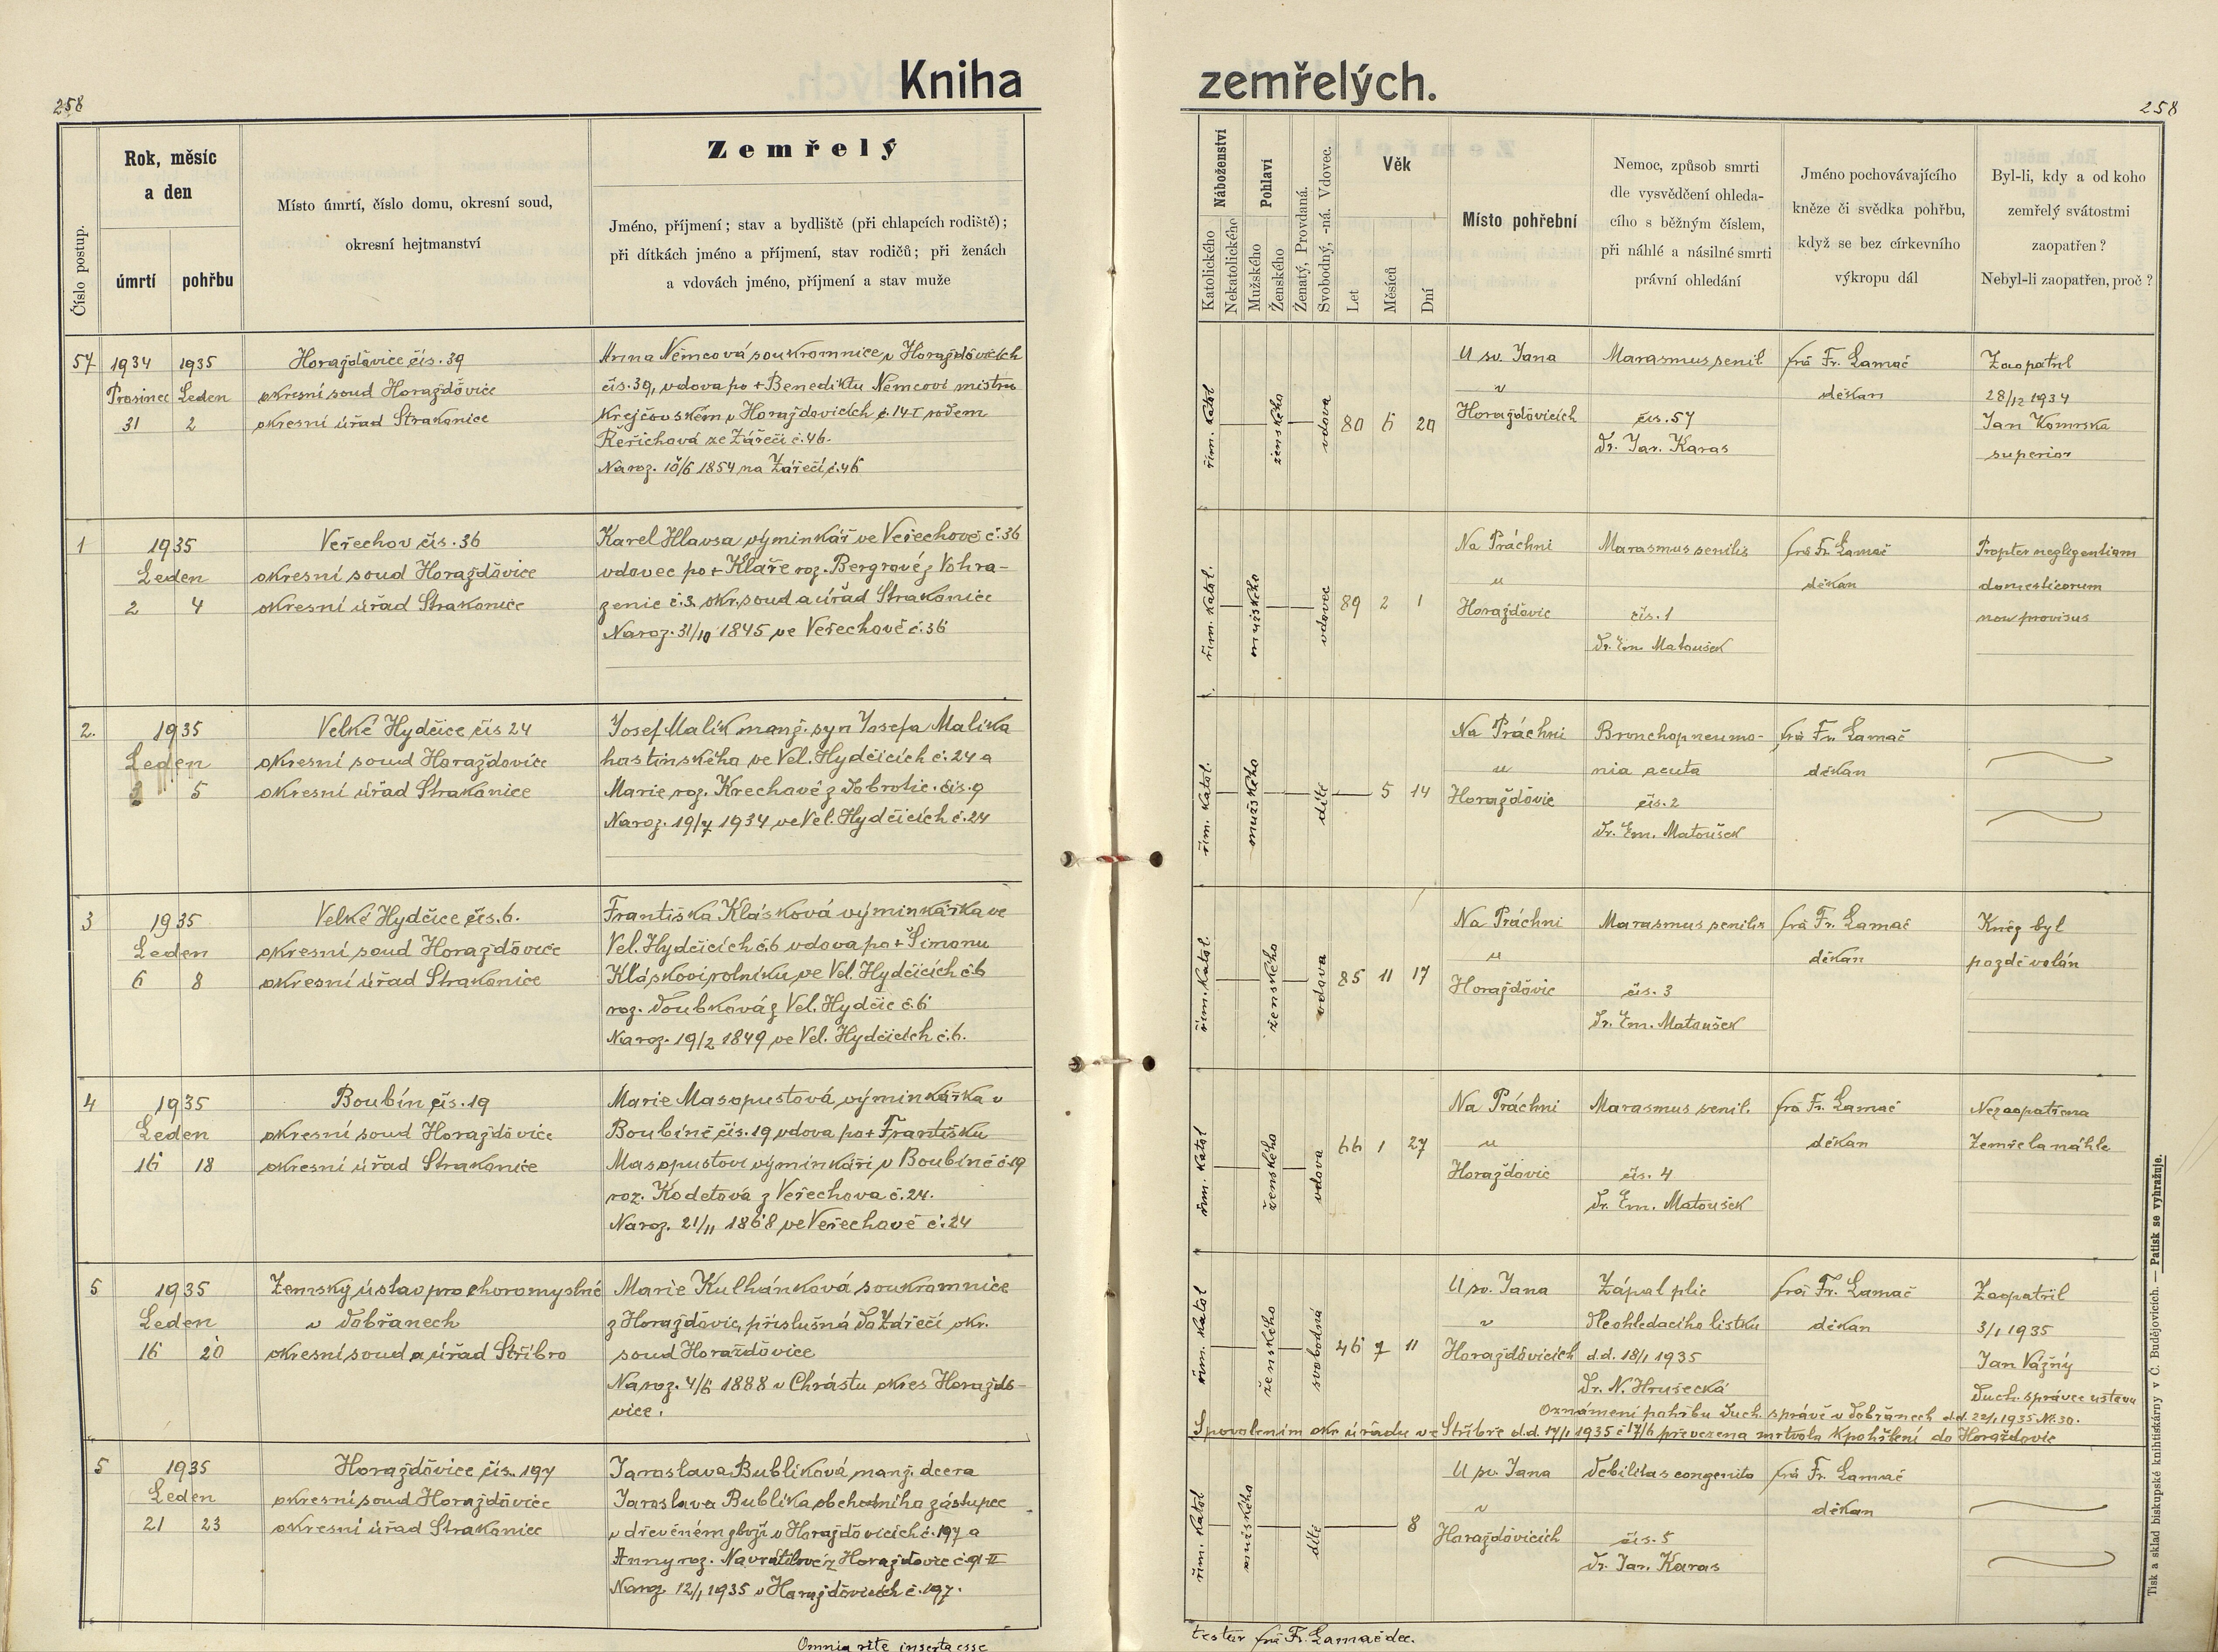 258
Kniha zemřelých.
258
Číslo postup.
Rok, měsíc
a den
úmrtí
pohřbu
Místo úmrtí, číslo domu, okresní soud,
okresní hejtmanství
Zemřelý
Jméno, příjmení; stav a bydliště (při chlapcích rodiště);
při dítkách jméno a příjmení, stav rodičů; při ženách
a vdovách jméno, příjmení a stav muže
Náboženství
Katolického
Nekatolického
Pohlaví
Mužského
Ženského
Ženatý, Provdaná.
Svobodný, -ná. Vdovec.
Věk
Let
Měsíců
Dní
Místo pohřební
Nemoc, způsob smrti
dle vysvědčení ohleda-
cího s běžným číslem,
při náhlé a násilné smrti
právní ohledání
Jméno pochovávajícího
kněze či svědka pohřbu,
když se bez církevního
výkropu dál
Byl-li, kdy a od koho
zemřelý svátostmi
zaopatřen?
Nebyl-li zaopatřen, proč?
57
1934 1935
Prosinec Leden
31 2
Horažďovice čís. 39
okresní soud Horažďovice
okresní úřad Strakonice
Anna Němcová soukromnice v Horažďovicích
čís. 39, vdova po + Benediktu Němcovi mistru
krejčovském v Horažďovicích č. 14-I rodem
Řeřichová ze Zářečí č. 46.
Naroz. 10/6 1854 na Zářečí č. 46
řím. katol
ženského
vdova
80 6 20
U sv. Jana
v
Horažďovicích
Marasmus senil
čís. 57
Dr. Jar. Karas
frá Fr. Lamač
děkan
Zaopatřil
28/12 1934
Jan Komrska
superior
1
1935
Leden
2 4
Veřechov čís. 36
okresní soud Horažďovice
okresní úřad Strakonice
Karel Hlavsa výminkář ve Veřechově č. 36
vdovec po + Kláře roz. Bergrové z Vohra-
zenic č. 3 okr. soud a úřad Strakonice
Naroz. 31/10 1845 ve Veřechově č. 36
řím. katol.
mužského
vdovec
89 2 1
Na Práchni
u
Horažďovic
Marasmus senilis
čís. 1
Dr. Em. Matoušek
frá Fr. Lamač
děkan
Propter neglegentiam
domesticorum
non provisus
2.
1935
Leden
5
Velké Hydčice čís 24
okresní soud Horažďovice
okresní úřad Strakonice
Josef Malík manž. syn Josefa Malíka
hostinského ve Vel. Hydčicích č. 24 a
Marie roz. Krechové z Dobrotic. čís. 9
Naroz. 19/7 1934 ve Vel. Hydčicích č. 24
řím. katol.
mužského
dítě
5 14
Na Práchni
u
Horažďovic
Bronchopneumo-
nia acuta
čís. 2
Dr. Em. Matoušek
frá Fr. Lamač
děkan
3
1935
Leden
6 8
Velké Hydčice čís. 6.
okresní soud Horažďovice
okresní úřad Strakonice
Františka Klásková výminkářka ve
Vel. Hydčicích č. 6 vdova po + Šimonu
Kláskovi rolníku ve Vel. Hydčicích č. 6
roz. Doubková z Vel. Hydčic č. 6
Naroz. 19/2 1849 ve Vel. Hydčicích č. 6.
řím. katol.
ženského
vdova
85 11 17
Na Práchni
u
Horažďovic
Marasmus senilis
čís. 3
Dr. Em. Matoušek
frá Fr. Lamač
děkan
Kněz byl
pozdě volán
4
1935
Leden
16 18
Boubín čís. 19
okresní soud Horažďovice
okresní úřad Strakonice
Marie Masopustová výminkářka v
Boubíně čís. 19 vdova po + Františku
Masopustovi výminkáři v Boubíně č. 19
roz. Kodetová z Veřechova č. 24.
Naroz. 21/11 1868 ve Veřechově č. 24
řím. katol
ženského
vdova
66 1 27
Na Práchni
u
Horažďovic
Marasmus senil.
čís. 4
Dr. Em. Matoušek
frá Fr. Lamač
děkan
Nezaopatřena
Zemřela náhle
5
1935
Leden
16 20
Zemský ústav pro choromyslné
v Dobřanech
okresní soud a úřad Stříbro
Marie Kulhánková soukromnice
z Horažďovic, příslušná do Zářečí okr.
soud Horažďovice
Naroz. 4/6 1888 v Chrástu okres Horažďo-
vice.
řím. katol
ženského
svobodná
46 7 11
U sv. Jana
v
Horažďovicích
Zápal plic
Dle ohledacího lístku
d.d. 18/1 1935
Dr. N. Hrušecká
frá Fr. Lamač
děkan
Zaopatřil
3/1 1935
Jan Vážný
Duch. správce ústavu
Oznámení pohřbu duch. správě v Dobřanech d.d. 22/1 1935 No. 30.
S povolením okr. úřadu ve Stříbře d.d. 17/1 1935 č 17/6 převezena mrtvola k pohřbení do Horažďovic
5
1935
Leden
21 23
Horažďovice čís. 197
okresní soud Horažďovice
okresní úřad Strakonice
Jaroslava Bublíková manž. dcera
Jaroslava Bublíka obchodního zástupce
v dřevěném zboží v Horažďovicích č. 197 a
Anny roz. Navrátilové z Horažďovic č. 91-II
Naroz. 12/1 1935 v Horažďovicích č. 197.
řím. katol
mužského
dítě
8
U sv. Jana
v
Horažďovicích
Debilitas congenita
čís. 5
Dr. Jar. Karas
frá Fr. Lamač
děkan
Omnia rite inserta esse
testor frá Fr. Lamač dec.
Tisk a sklad biskupské knihtiskárny v Č. Budějovicích. — Patisk se vyhražuje.